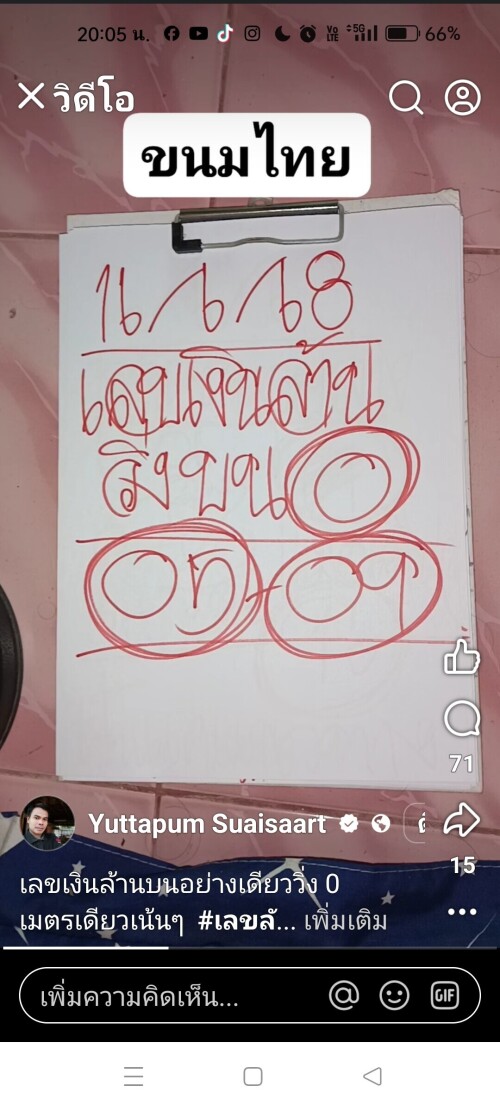 20:05 น. VO LTE 5G 66%
วิดีโอ
ขนมไทย
เลขเงินล้าน
วิ่งบน 0
05-09
71
Yuttapum Suaisaart
15
เลขเงินล้านบนอย่างเดียววิ่ง 0
เมตรเดียวเน้นๆ #เลขลั... เพิ่มเติม
เพิ่มความคิดเห็น...
GIF